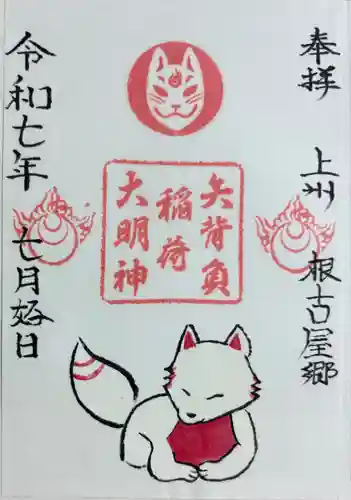 奉拝
上州 根古屋郷
矢背負
稲荷
大明神
令和七年 七月好日